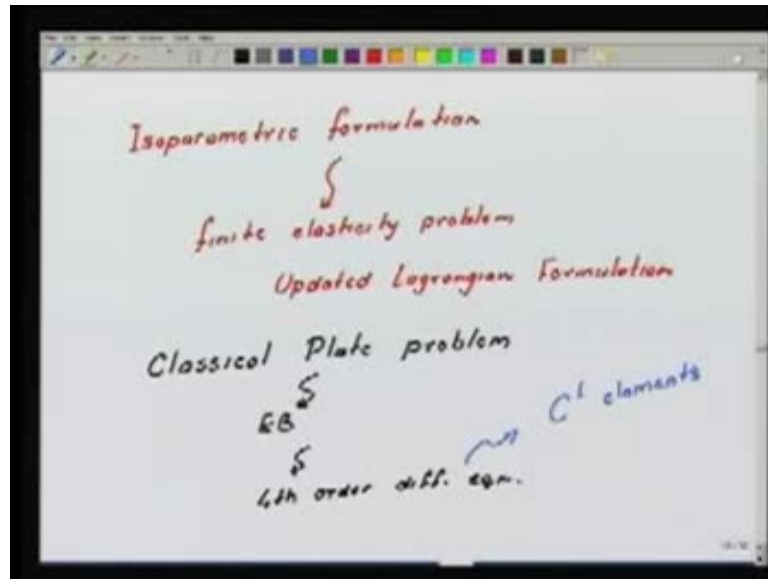 Isoparametric formulation
finite elasticity problem
Updated Lagrangian Formulation
Classical Plate problem
EB
C¹ elements
4th order diff. eqn.